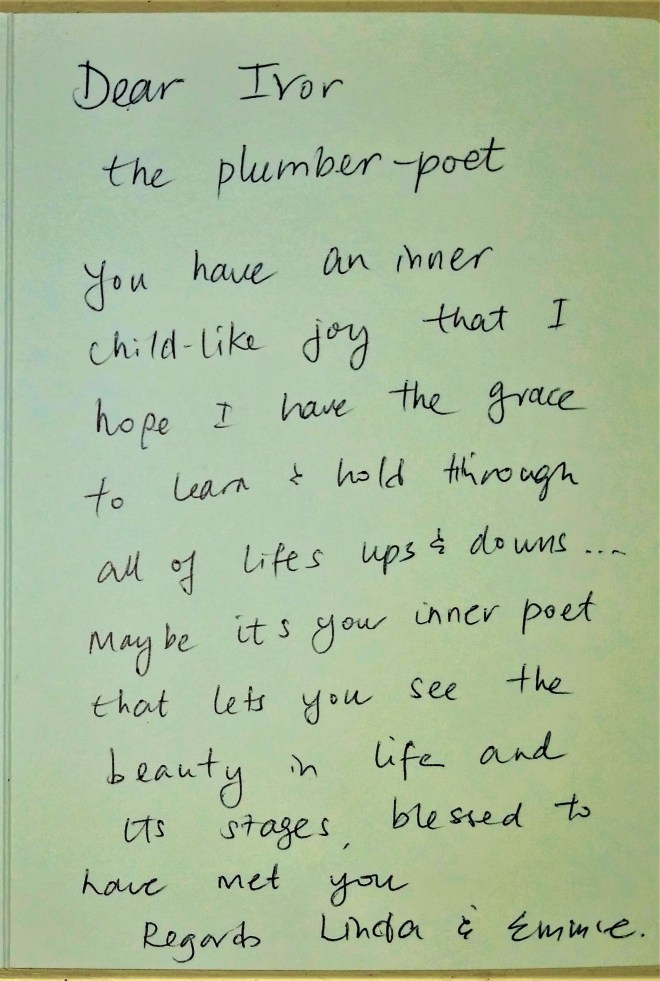 Dear Ivor
the plumber-poet
You have an inner
child-like joy that I
hope I have the grace
to learn & hold through
all of lifes ups & downs ...
Maybe its your inner poet
that lets you see the
beauty in life and
its stages, blessed to
have met you
Regards Linda & Emmie.